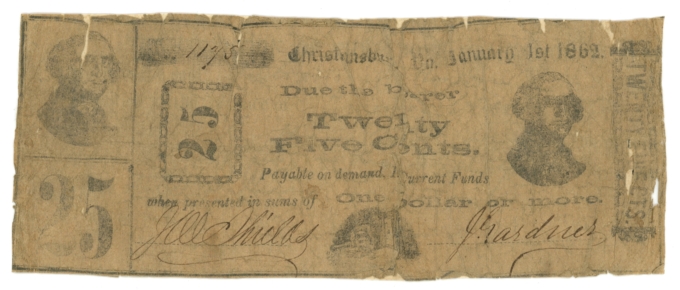 1175
Christiansburg, Va. January 1st 1862.
Due the bearer
25
Twenty
Five Cents.
Payable on demand, in Current Funds
when presented in sums of One Dollar or more.
25
J Gardner
TWENTY FIVE CTS